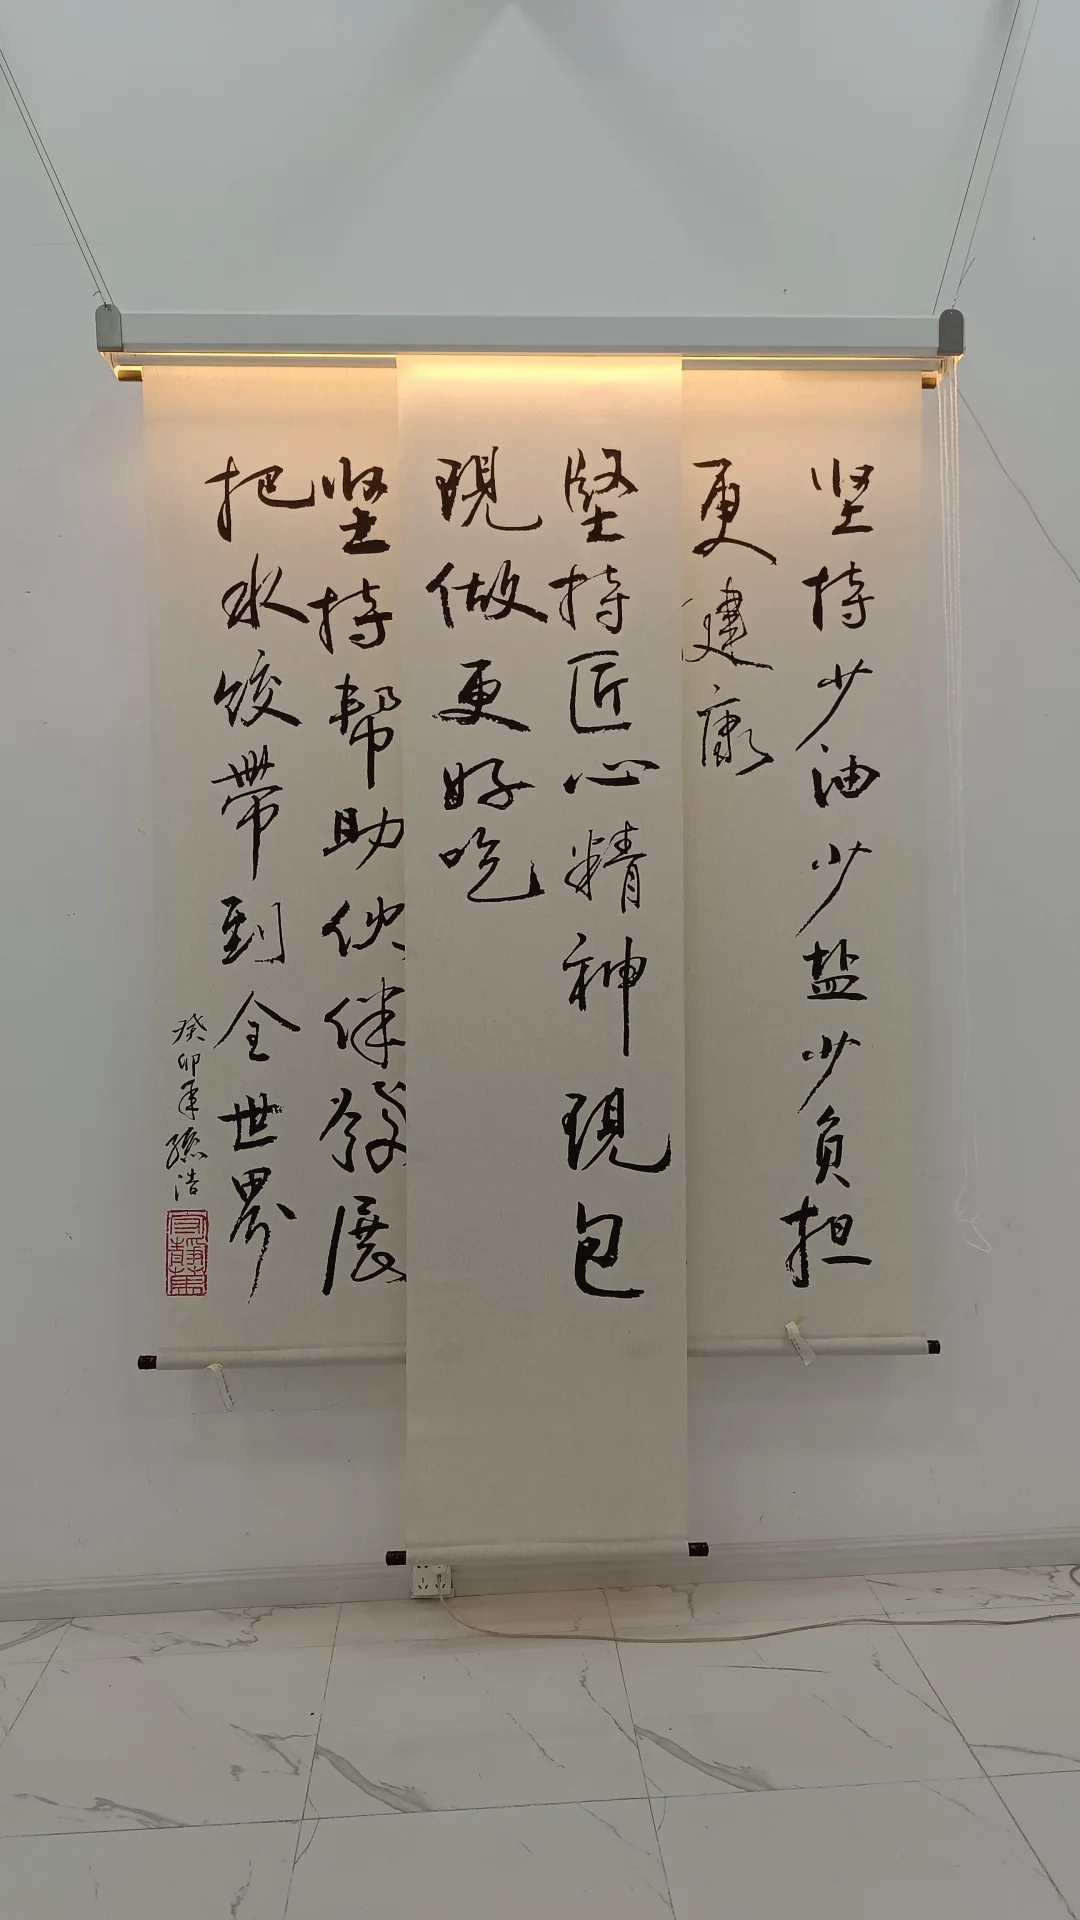 坚持少油少盐少负担
更建康
堅持匠心精神現包
現做更好吃
坚持帮助伙伴發展
把水饺带到全世界
癸卯年孫浩